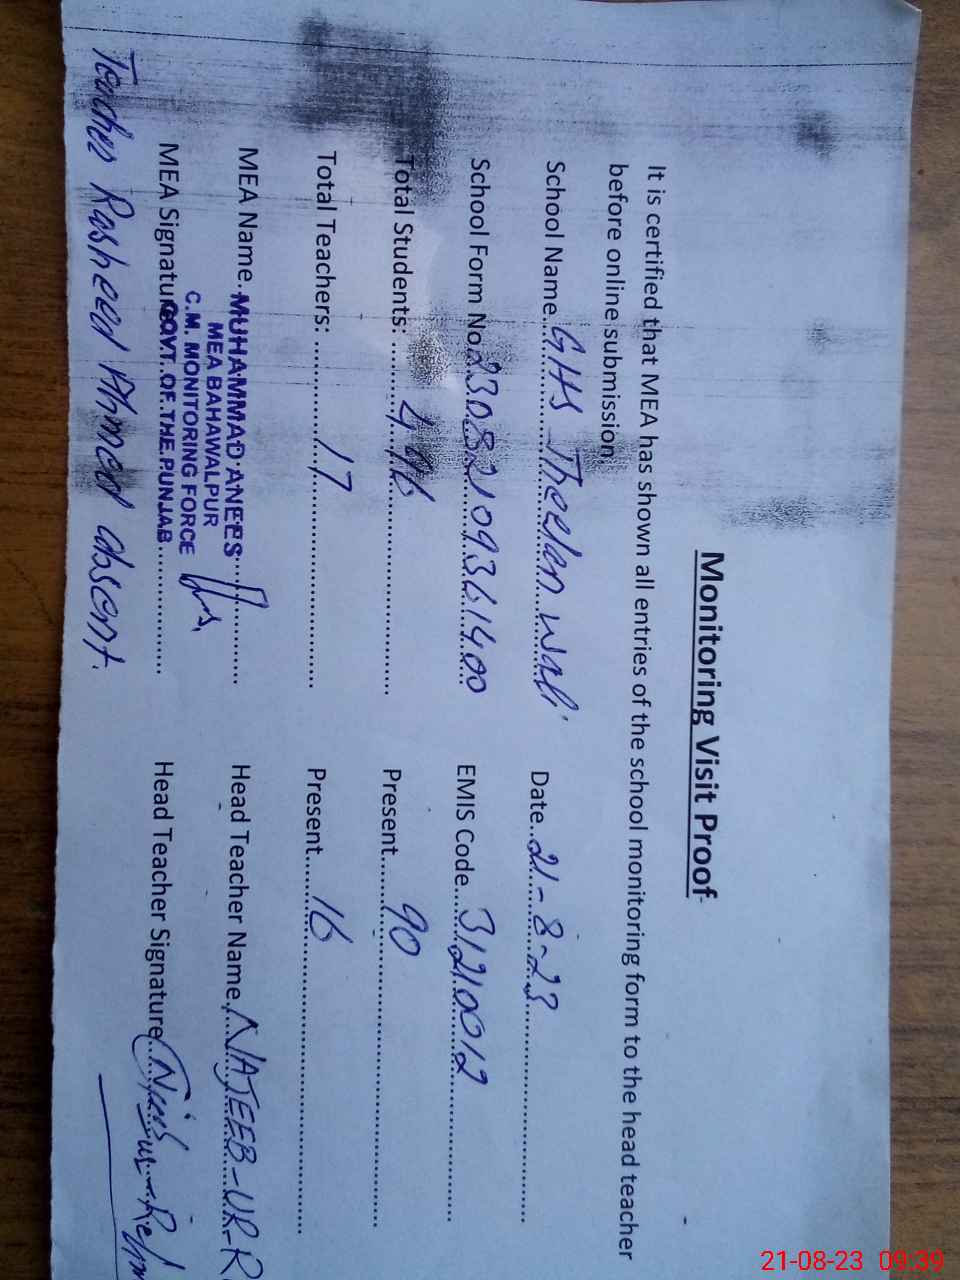 Monitoring Visit Proof
It is certified that MEA has shown all entries of the school monitoring form to the head teacher
before online submission.
School Name...GHS Jheelan wali Date..21-8-23
School Form No.23082109361400 EMIS Code...31210012
Total Students: 496 Present...90
Total Teachers: 17 Present...16
MEA Name. MUHAMMAD ANEES Head Teacher Name. NAJEEB-UR-R
MEA BAHAWALPUR
C.M. MONITORING FORCE
MEA Signature GOVT. OF THE PUNJAB Head Teacher Signature
Teacher Rasheed Ahmed absent.
21-08-23 09:39